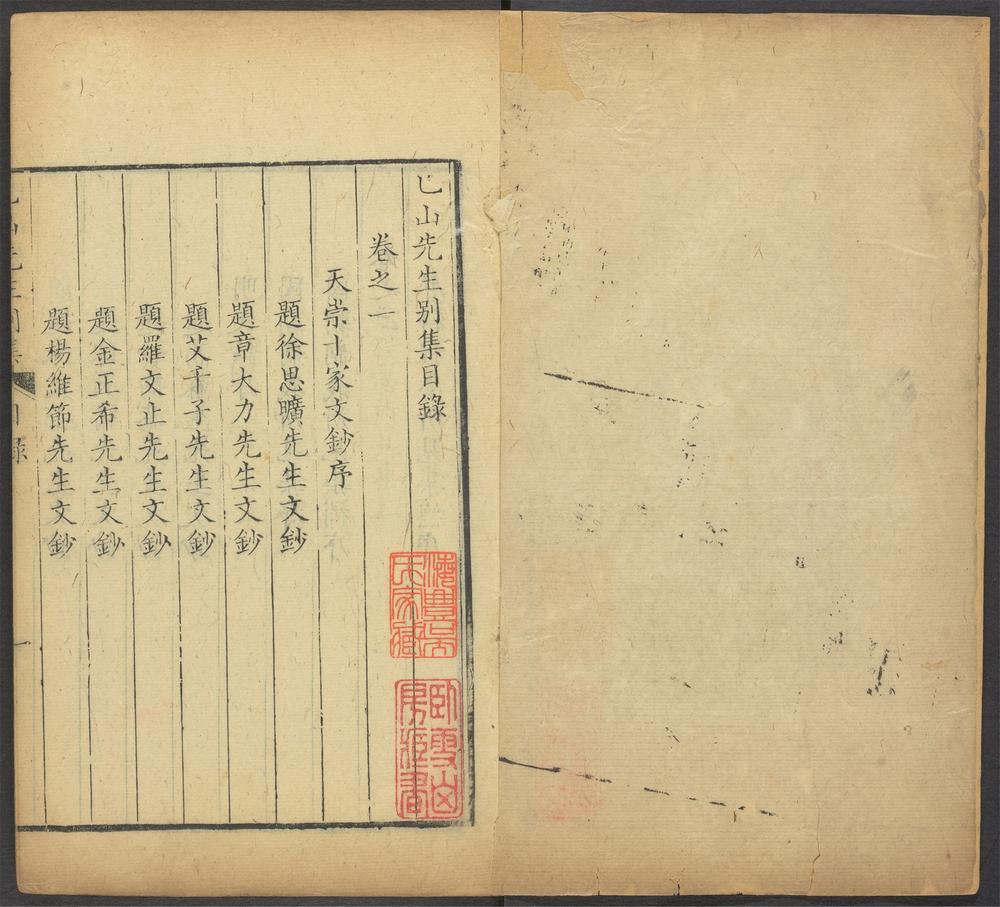 已山先生别集目錄
卷之一
天崇十家文鈔序
題徐思曠先生文鈔
題章大力先生文鈔
題艾千子先生文鈔
題羅文止先生文鈔
題金正希先生文鈔
題楊維節先生文鈔
目錄
一
海豐吳氏家藏